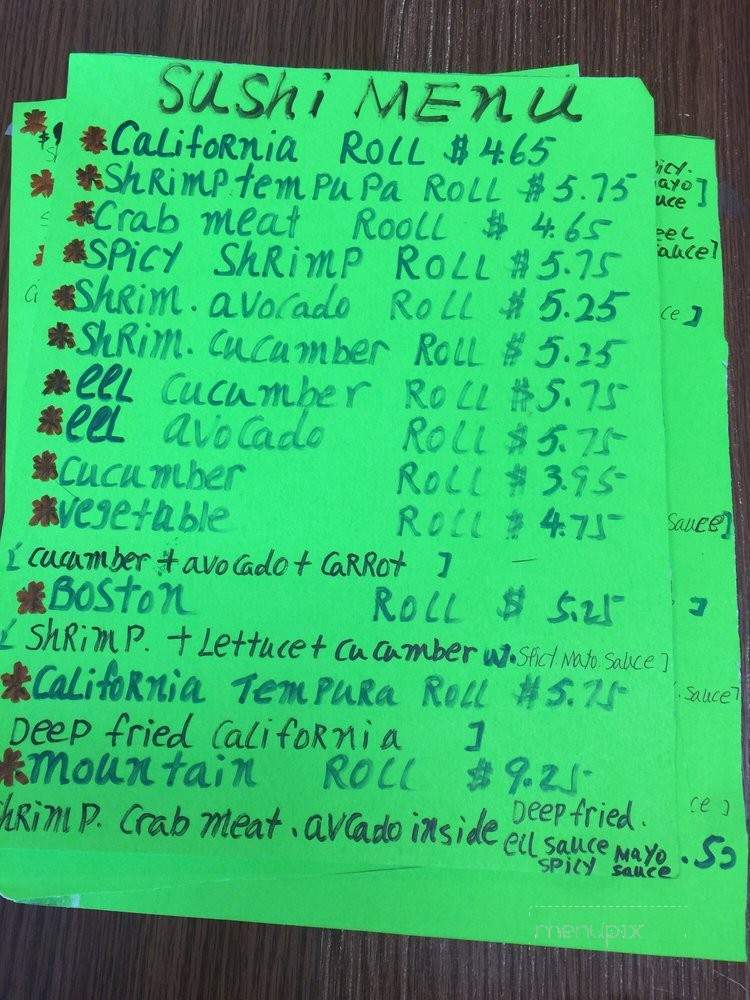 SUSHi MENU
CALifoRNiA ROLL $ 4.65
ShRimP tem PuPa ROLL $ 5.75
Crab meat ROOLL $ 4.65
SPiCY ShRimP ROLL $ 5.75
ShRim. avocado ROLL $ 5.25
ShRim. cucumber ROLL $ 5.25
eeL cucumber ROLL $ 5.75
eeL avocado ROLL $ 5.75
cucumber ROLL $ 3.95
vegetable ROLL $ 4.75
[ cucumber + avocado + CaRRot ]
BOSton ROLL $ 5.25
[ ShRimP. + Lettuce + cucumber w. SPicY. Mayo. Sauce ]
CALifoRnia TEMPURa ROLL $ 5.75
DEEP fried CaLifoRnia ]
mountain ROLL $ 9.25
hRimP. Crab meat. avcado inside DEEP fried.
eel sauce
SPicy Mayo sauce
.50
icy.
ayo ]
uce
eel
sauce]
ce ]
Sauce]
]
. sauce]
ce ]
menupix